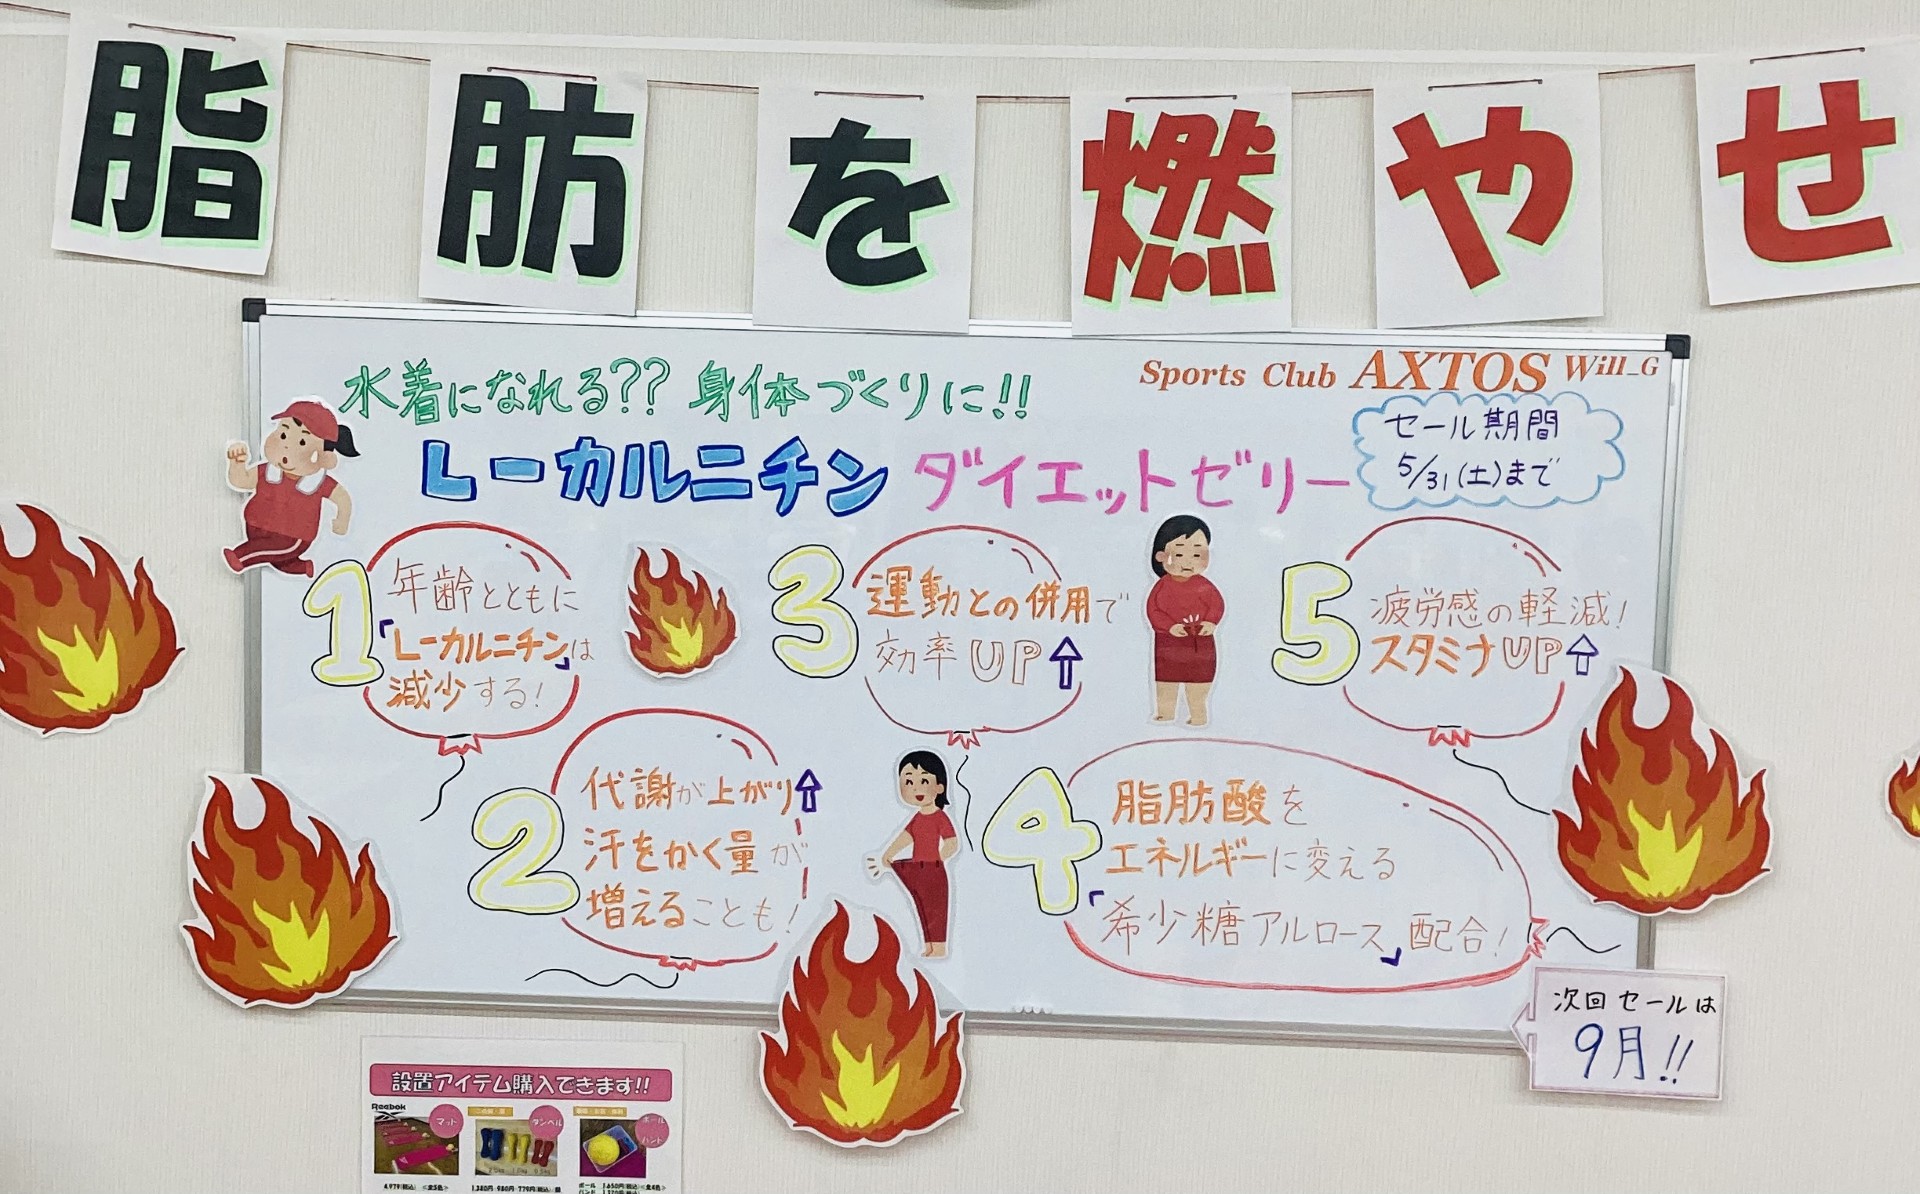 脂肪を燃やせ
水着になれる?? 身体づくりに!!
Sports Club AXTOS Will_G
L-カルニチン ダイエットゼリー
セール期間
5/31(土)まで
1
年齢とともに
「L-カルニチン」は
減少する!
2
代謝が上がり↑
汗をかく量が
増えることも!
3
運動との併用で
効率UP↑
4
脂肪酸を
エネルギーに変える
「希少糖アルロース」配合!
5
疲労感の軽減!
スタミナUP↑
次回セールは
9月!!
設置アイテム購入できます!!
Reebok
マット
ダンベル
ボール
バンド
4,979(税込) <全5色>
1,380円・980円・779円(税込)
ボール 1,650円(税込)<全4色>